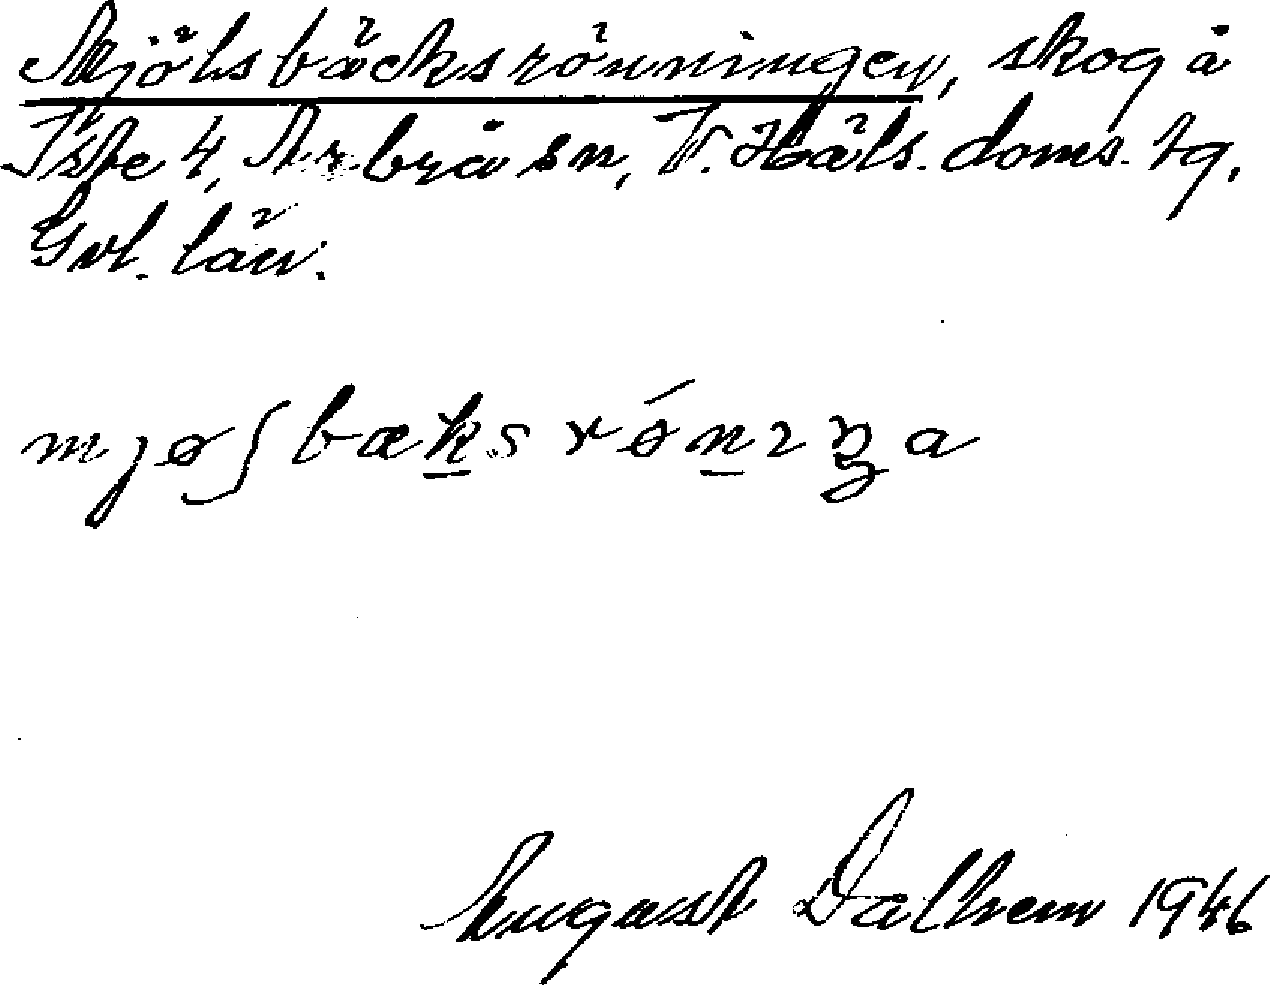 Mjölsbäcksrönningen, skog å
Iste 4, Arbrå sn, V. Häls. doms. tg.
Gvl. län.
mjøʃbæksrǿnıŋa
August Dalhem 1946